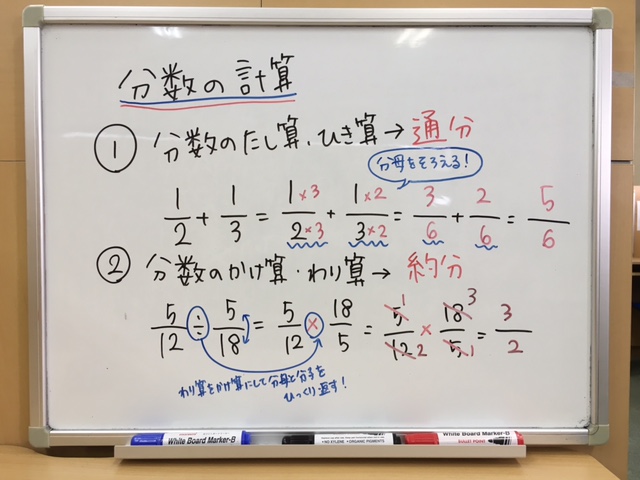 分数の計算
① 分数のたし算・ひき算→通分
分母をそろえる!
1/2 + 1/3 = 1×3/2×3 + 1×2/3×2 = 3/6 + 2/6 = 5/6
② 分数のかけ算・わり算→約分
5/12 ÷ 5/18 = 5/12 × 18/5 = 5 1/12 2 × 18 3/5 1 = 3/2
わり算をかけ算にして分母と分子を
ひっくり返す!
White Board Marker-B
• NO XYLENE • ORGANIC PIGMENTS
White Board Marker-R